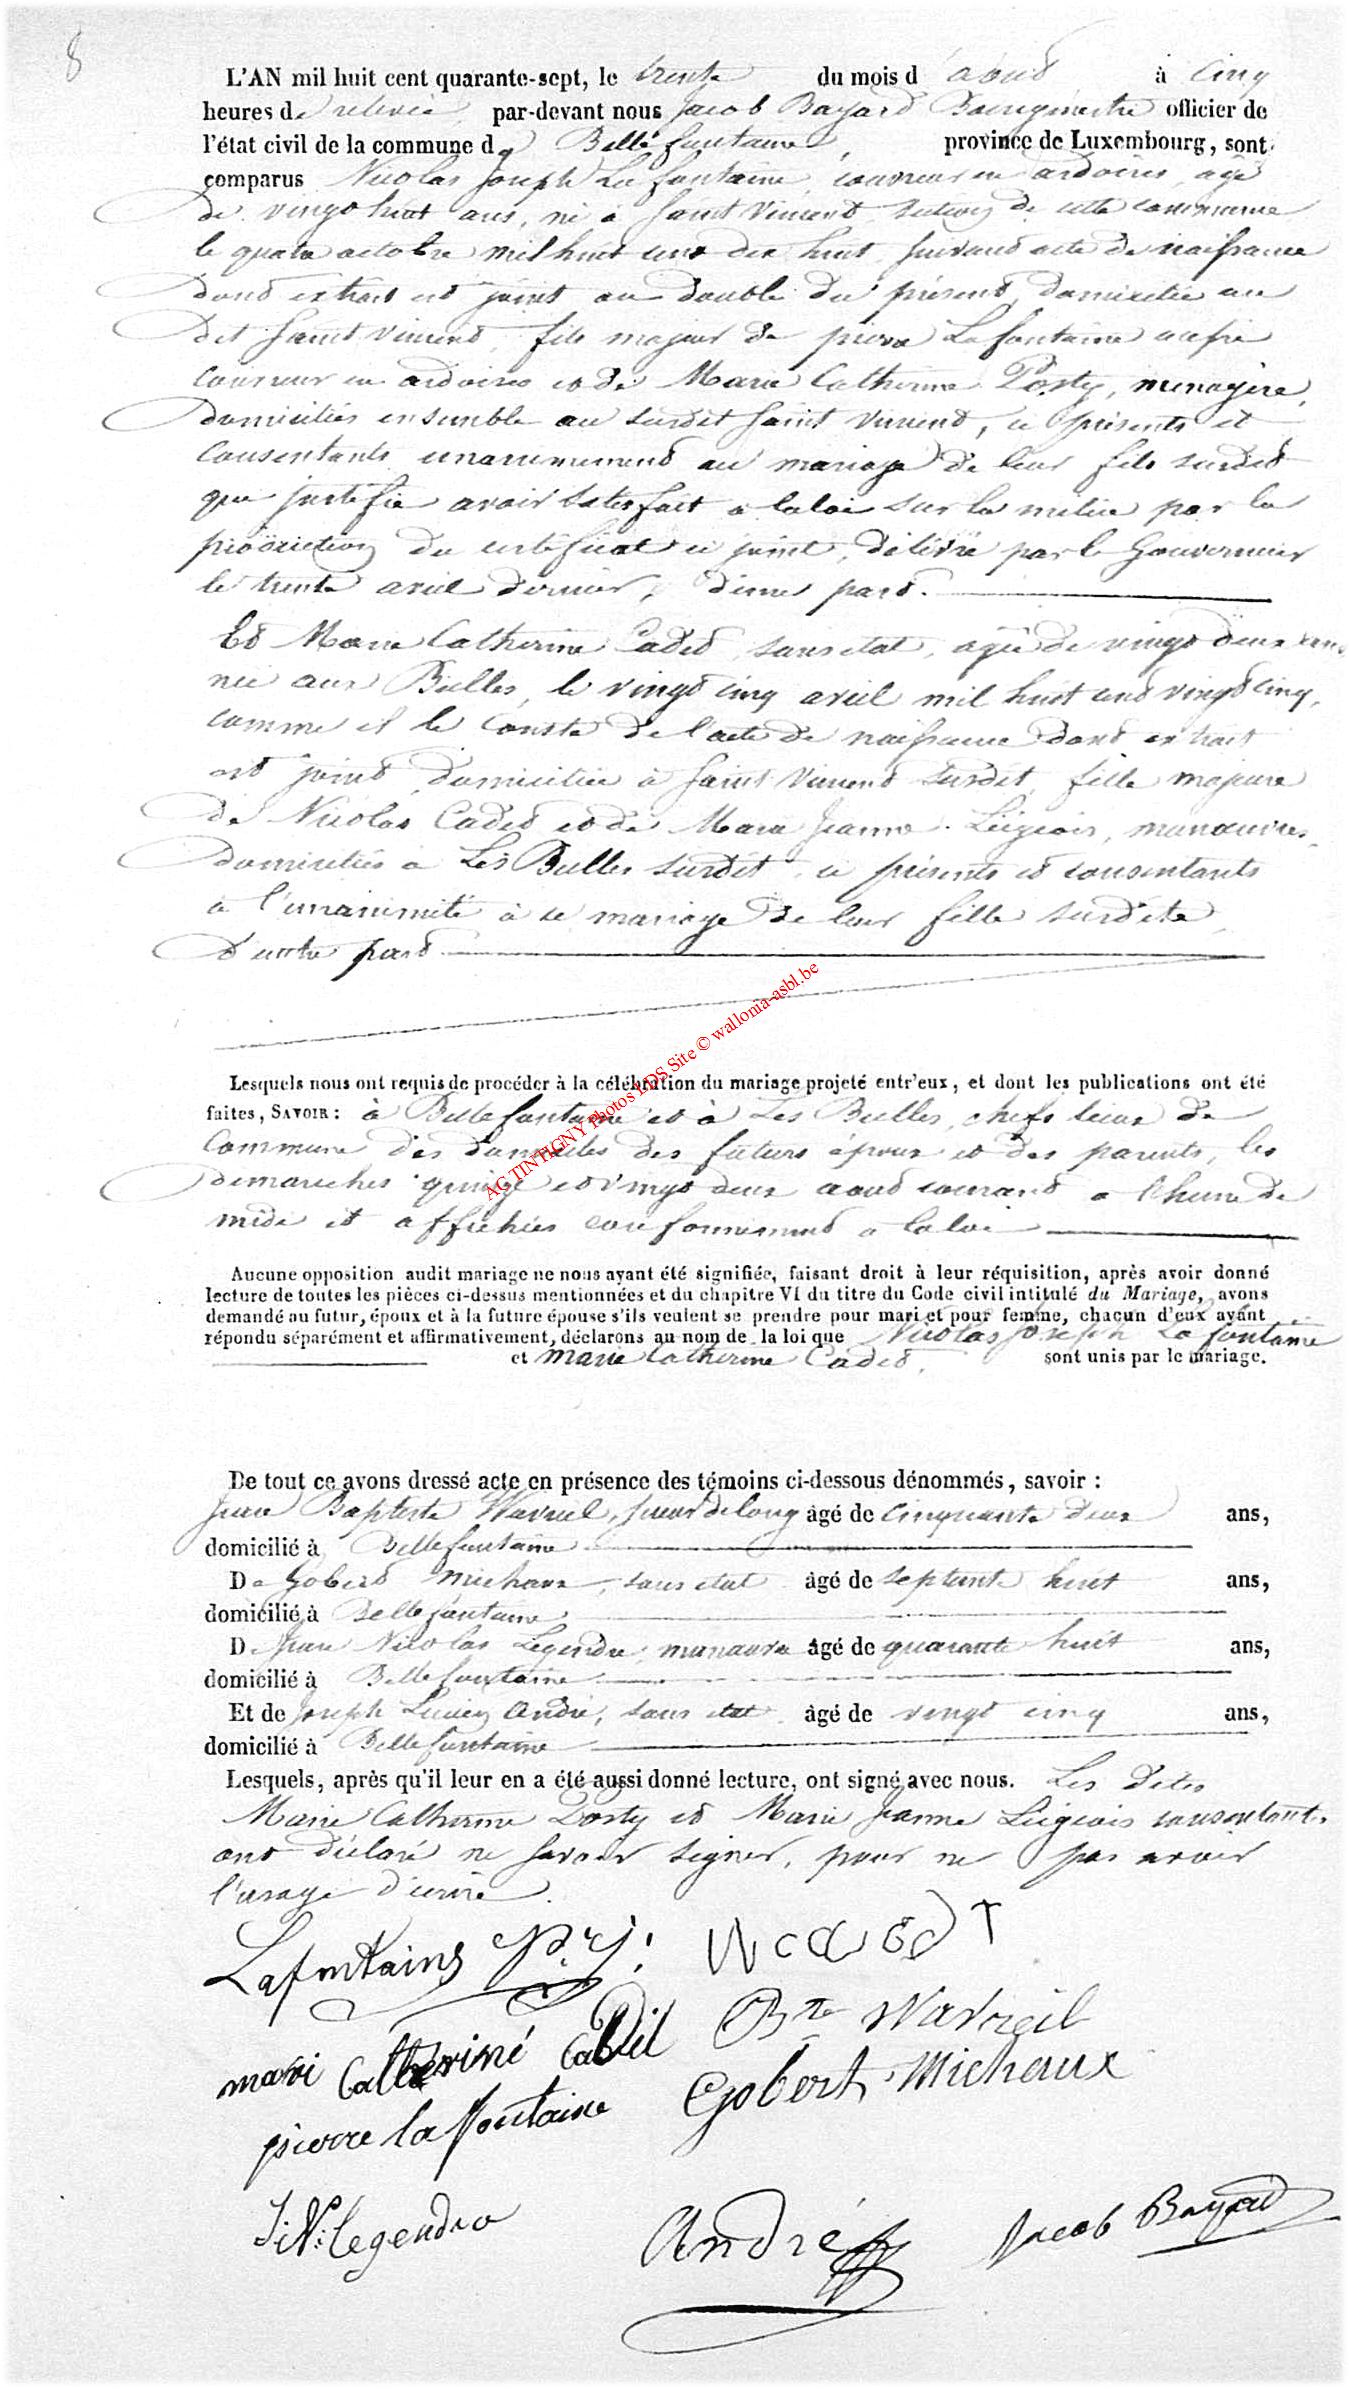 8
L'AN mil huit cent quarante-sept, le trente du mois d'aout à cinq
heures de relevée, par-devant nous Jacob Bayard Bourgmestre officier de
l'état civil de la commune de Bellefontaine, province de Luxembourg, sont
comparus Nicolas Joseph La fontaine, couvreur en ardoises, agé
de vingt huit ans, né à Saint Vincent section de cette commune
le quatre octobre mil huit cent dix huit, suivant acte de naissance
dont extrait est joint au double du présent, domicilié au
dit Saint Vincent, fils majeur de pierre Lafontaine aussi
couvreur en ardoises et de Marie Catherine Posty, menagère,
domiciliés ensemble au susdit Saint Vincent, ci présents et
consentants unanimement au mariage de leur fils susdit
que justifie avoir satisfait a la loi sur la milice par la
production du certificat ci joint, délivré par le Gouverneur
le trente avril dernier, d'une part.
Et Marie Catherine Cadet, sans etat, agée de vingt deux ans
née aux Bulles, le vingt cinq avril mil huit cent vingt cinq,
comme il le conste de l'acte de naissance dont extrait
est joint domiciliée à Saint Vincent susdit, fille majeure
de Nicolas Cadet et de Marie Jeanne Liégeois, manœuvres,
domiciliés a Les Bulles susdit, ci présents et consentants
a l'unanimité à ce mariage de leur fille susdite,
d'autre part
AG TINTIGNY Photos LDS Site © wallonia-asbl.be
Lesquels nous ont requis de procéder à la célébration du mariage projeté entr'eux, et dont les publications ont été
faites, SAVOIR : à Bellefontaine et à Les Bulles, chefs lieux de
Commune des domiciles des futurs époux et des parents, les
dimanches quinze et vingt deux aout courant a l'heure de
midi et affichées conformement a la loi
Aucune opposition audit mariage ne nous ayant été signifiée, faisant droit à leur réquisition, après avoir donné
lecture de toutes les pièces ci-dessus mentionnées et du chapitre VI du titre du Code civil intitulé du Mariage, avons
demandé au futur, époux et à la future épouse s'ils veulent se prendre pour mari et pour femme, chacun d'eux ayant
répondu séparément et affirmativement, déclarons au nom de la loi que Nicolas Joseph La fontaine
et marie Catherine Cadet, sont unis par le mariage.
De tout ce avons dressé acte en présence des témoins ci-dessous dénommés, savoir :
Jean Baptiste Wavreil, scieur de long âgé de cinquante deux ans,
domicilié à Bellefontaine
De Gobert Michaux, sans etat âgé de septante huit ans,
domicilié à Bellefontaine
De Jean Nicolas Legendre, manœuvre âgé de quarante huit ans,
domicilié à Bellefontaine
Et de Joseph Lucien André, sans etat âgé de vingt cinq ans,
domicilié à Bellefontaine
Lesquels, après qu'il leur en a été aussi donné lecture, ont signé avec nous. Les dites
Marie Catherine Posty et Marie Jeanne Liégeois consentant.
ont déclaré ne savoir signer, pour ne pas avoir
l'usage d'ecrire.
Lafontaine
Bte Wavreil
mari Catheriné Cadet
Gobert Michaux
pierre la fontaine
J: N: legendre
André
Jacob Bayard